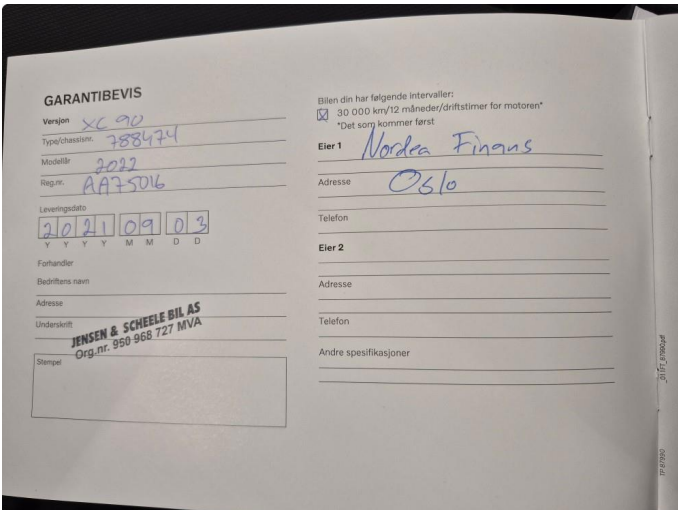 GARANTIBEVIS
Versjon XC 90
Type/chassisnr. 788474
Modellår 2022
Reg.nr. AA75016
Leveringsdato
2021 09 03
Y Y Y Y M M D D
Forhandler
Bedriftens navn
Adresse
Underskrift
JENSEN & SCHEELE BIL AS
Org.nr. 950 968 727 MVA
Stempel
Bilen din har følgende intervaller:
30 000 km/12 måneder/driftstimer for motoren*
*Det som kommer først
Eier 1 Nordea Finans
Adresse Oslo
Telefon
Eier 2
Adresse
Telefon
Andre spesifikasjoner
TP 67990